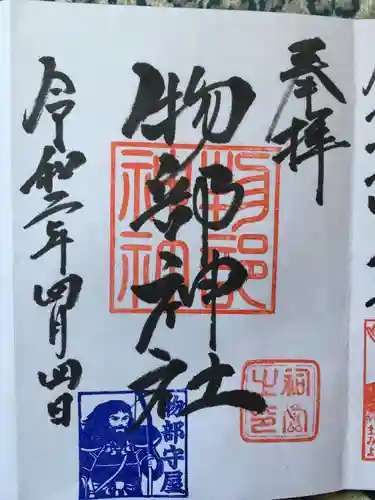 奉拝
物部神社
令和二年四月四日
物部神社
祠官之印
物部守屋